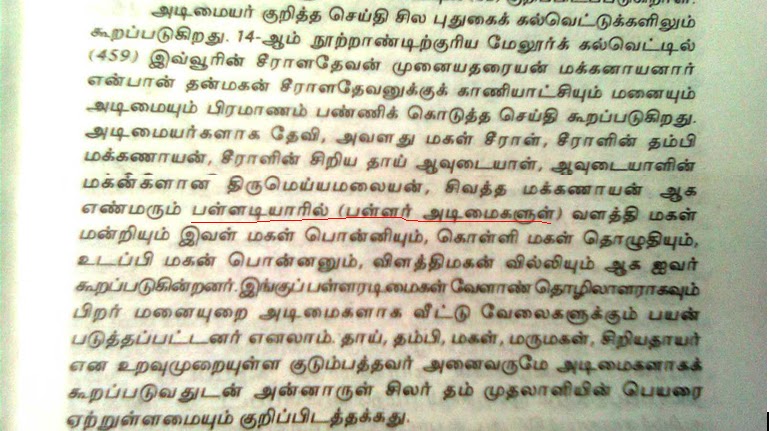 அடிமையர் குறித்த செய்தி சில புதுகைக் கல்வெட்டுக்களிலும்
கூறப்படுகிறது. 14-ஆம் நூற்றாண்டிற்குரிய மேலூர்க் கல்வெட்டில்
(459) இவ்வூரின் சீராளதேவன் முனையதரையன் மக்கனாயனார்
என்பான் தன்மகன் சீராளதேவனுக்குக் காணியாட்சியும் மனையும்
அடிமையும் பிரமாணம் பண்ணிக் கொடுத்த செய்தி கூறப்படுகிறது.
அடிமையர்களாக தேவி, அவளது மகள் சீராள், சீராளின் தம்பி
மக்கணாயன், சீராளின் சிறிய தாய் ஆவுடையாள், ஆவுடையாளின்
மகன்களான திருமெய்யமலையன், சிவத்த மக்கணாயன் ஆக
எண்மரும் பள்ளடியாரில் (பள்ளர் அடிமைகளுள்) வளத்தி மகள்
மன்றியும் இவள் மகள் பொன்னியும், கொள்ளி மகள் தொழுதியும்,
உடப்பி மகன் பொன்னனும், விளத்திமகன் வில்லியும் ஆக ஐவர்
கூறப்படுகின்றனர். இங்குப் பள்ளரடிமைகள் வேளாண் தொழிலாளராகவும்
பிறர் மனையுறை அடிமைகளாக வீட்டு வேலைகளுக்கும் பயன்
படுத்தப்பட்டனர் எனலாம். தாய், தம்பி, மகள், மருமகள், சிறியதாயர்
என உறவுமுறையுள்ள குடும்பத்தவர் அனைவருமே அடிமைகளாகக்
கூறப்படுவதுடன் அன்னாருள் சிலர் தம் முதலாளியின் பெயரை
ஏற்றுள்ளமையும் குறிப்பிடத்தக்கது.